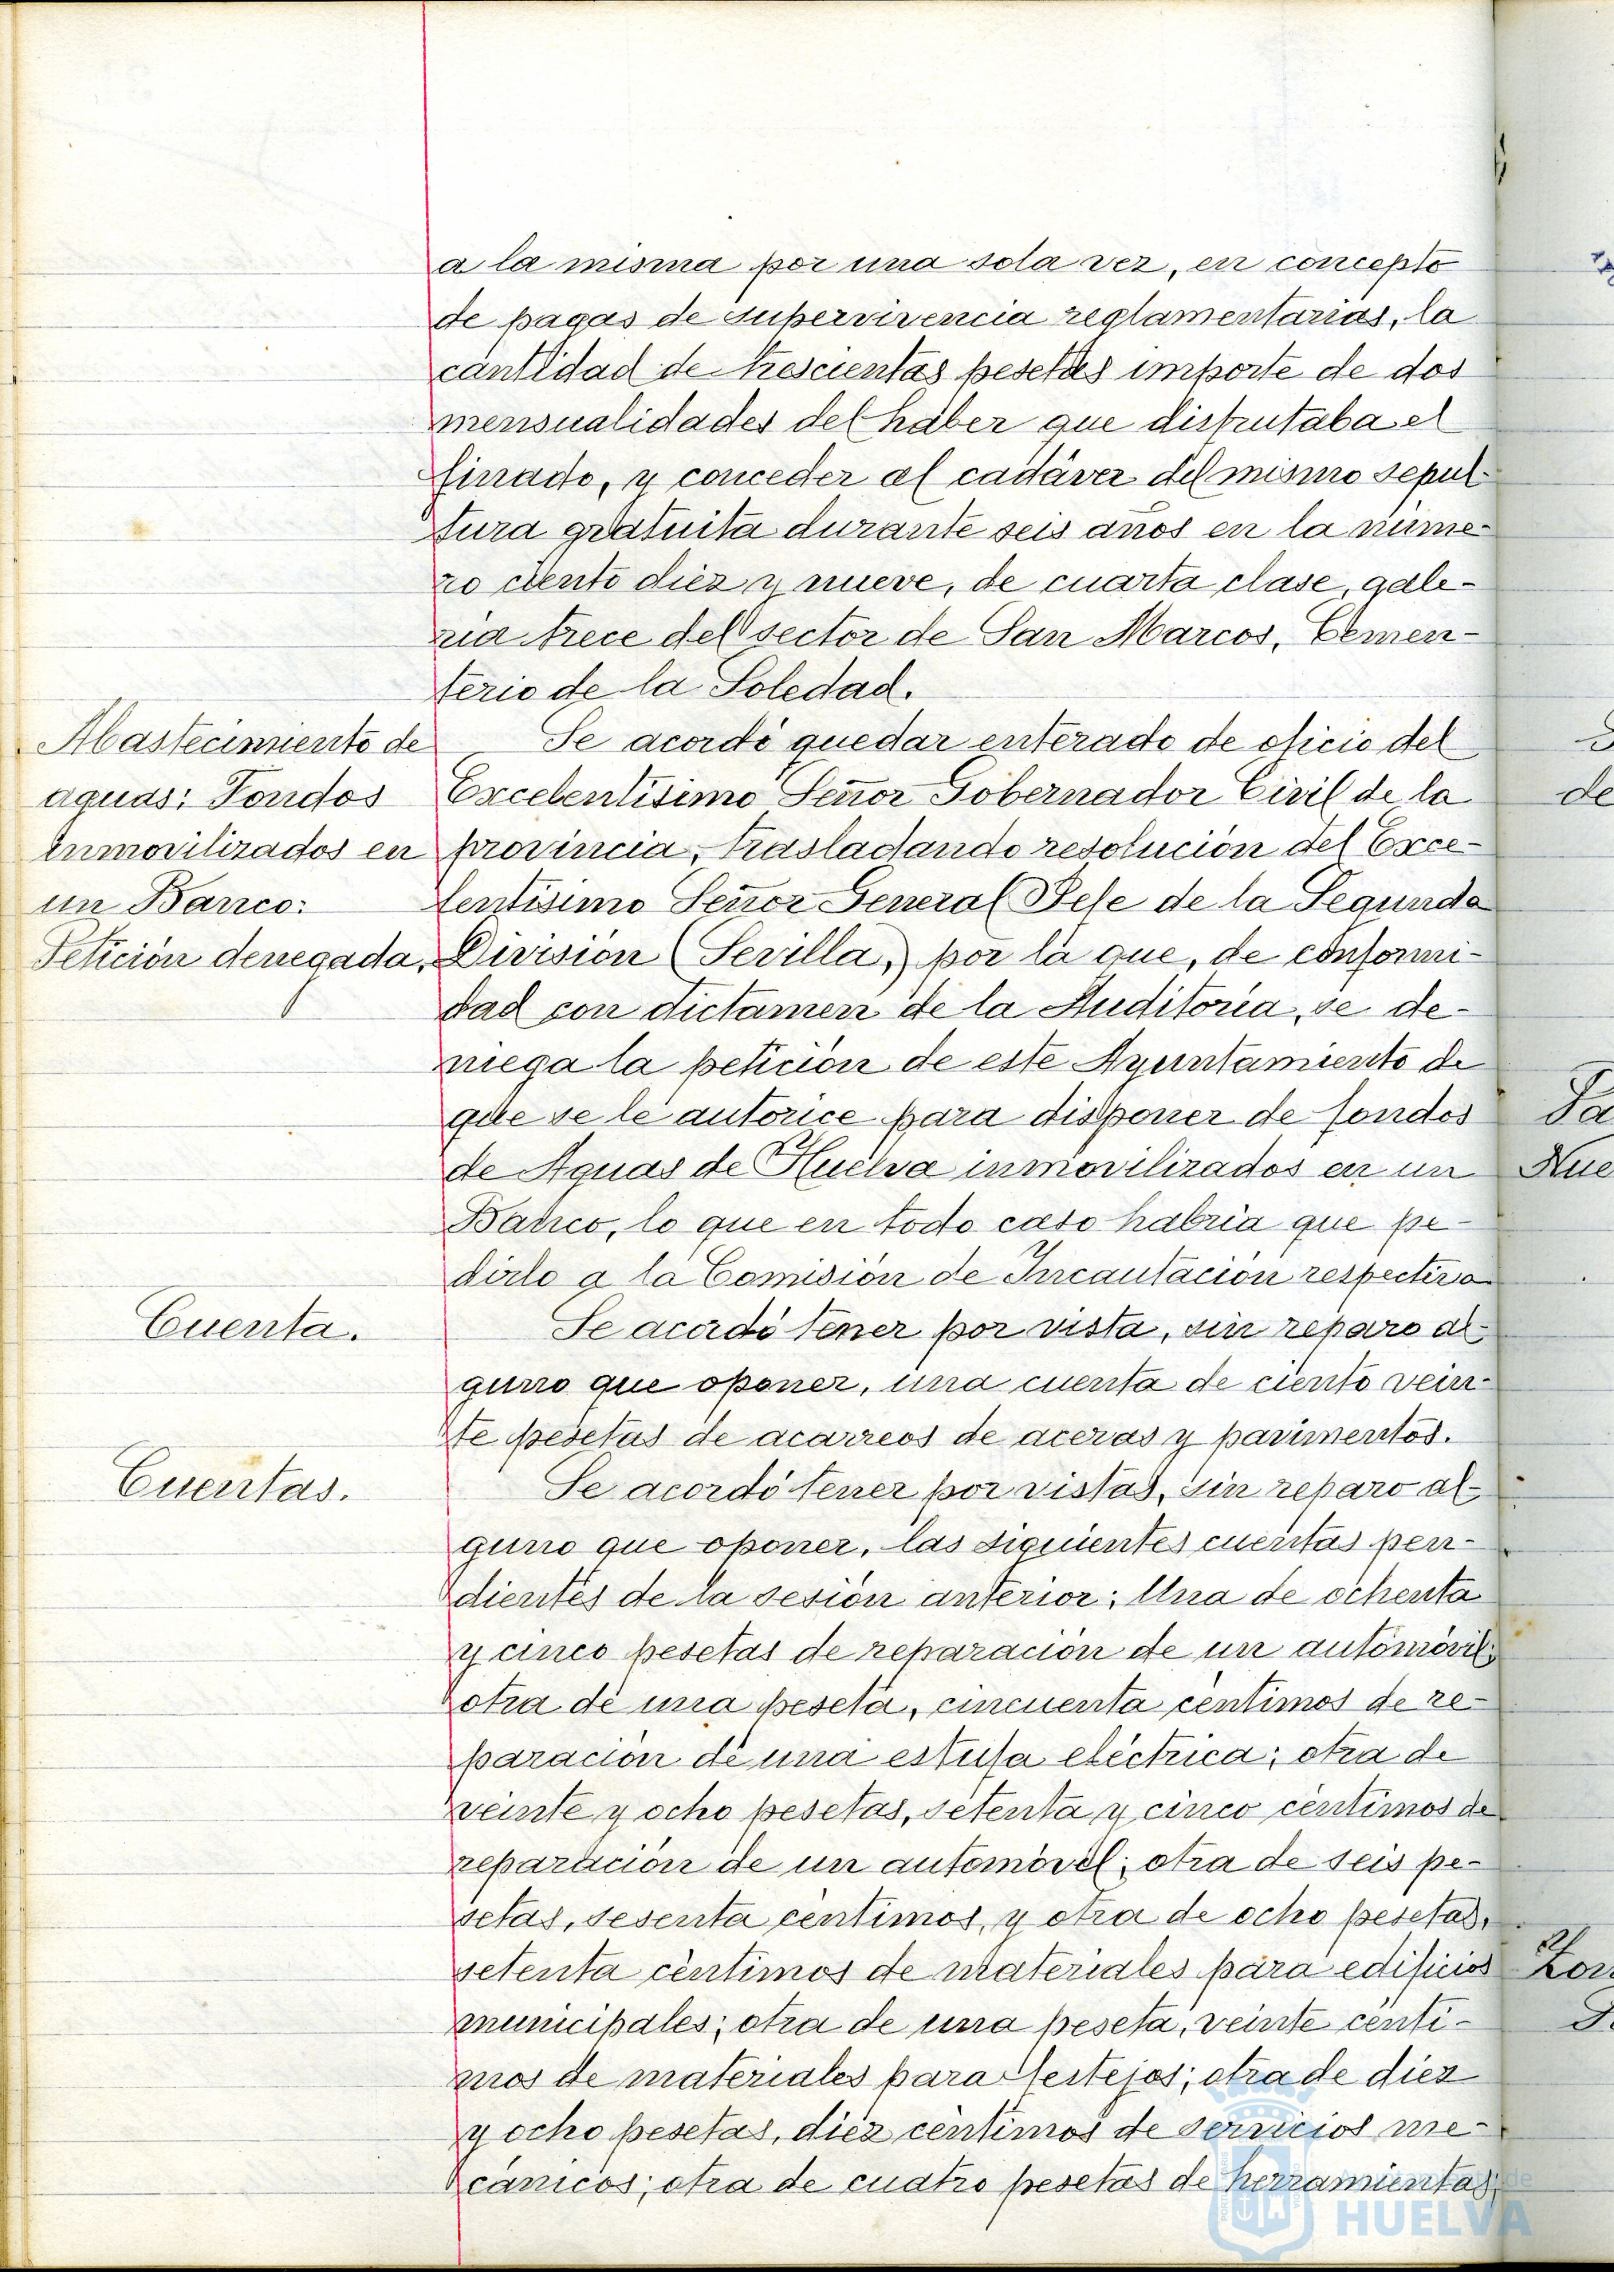 a la misma por una sola vez, en concepto
de pagas de supervivencia reglamentarias, la
cantidad de trescientas pesetas importe de dos
mensualidades del haber que disfrutaba el
finado, y conceder al cadáver del mismo sepul-
tura gratuita durante seis años en la núme-
ro ciento diez y nueve, de cuarta clase, gale-
ria trece del sector de San Marcos, Cemen-
terio de la Soledad.
Abastecimiento de
aguas: Fondos
inmovilizados en
un Banco:
Petición denegada.
Se acordó quedar enterado de oficio del
Excelentísimo Señor Gobernador Civil de la
provincia, trasladando resolución del Exce-
lentísimo Señor General Jefe de la Segunda
División (Sevilla,) por la que, de conformi-
dad con dictamen de la Auditoría, se de-
niega la petición de este Ayuntamiento de
que se le autorice para disponer de fondos
de Aguas de Huelva inmovilizados en un
Banco, lo que en todo caso habría que pe-
dirlo a la Comisión de Incautación respectiva
Cuenta.
Se acordó tener por vista, sin reparo al-
guno que oponer, una cuenta de ciento vein-
te pesetas de acarreos de aceras y pavimentos.
Cuentas.
Se acordó tener por vistas, sin reparo al-
guno que oponer, las siguientes cuentas pen-
dientes de la sesión anterior: Una de ochenta
y cinco pesetas de reparación de un automóvil;
otra de una peseta, cincuenta céntimos de re-
paración de una estufa eléctrica; otra de
veinte y ocho pesetas, setenta y cinco céntimos de
reparación de un automóvil; otra de seis pe-
setas, sesenta céntimos, y otra de ocho pesetas,
setenta céntimos de materiales para edificios
municipales; otra de una peseta, veinte cénti-
mos de materiales para festejos; otra de diez
y ocho pesetas, diez céntimos de servicios me-
cánicos; otra de cuatro pesetas de herramientas;
de
HUELVA